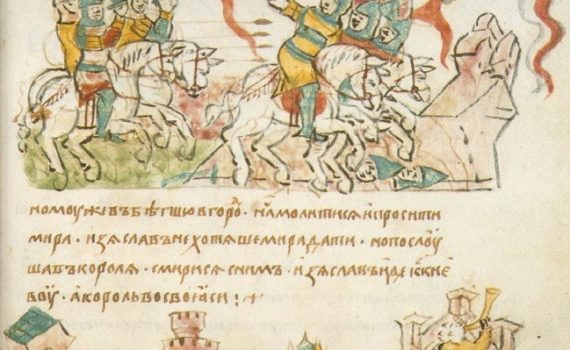 номоу же въбѣгшю вгоро · на молитисѧ и просити
мира · изѧславъ не хотѧше мира дати · но послоу
шавъ королѧ · смирисѧ снимъ · изѧславъ иде ккие
воу · а король восвоꙗси :+